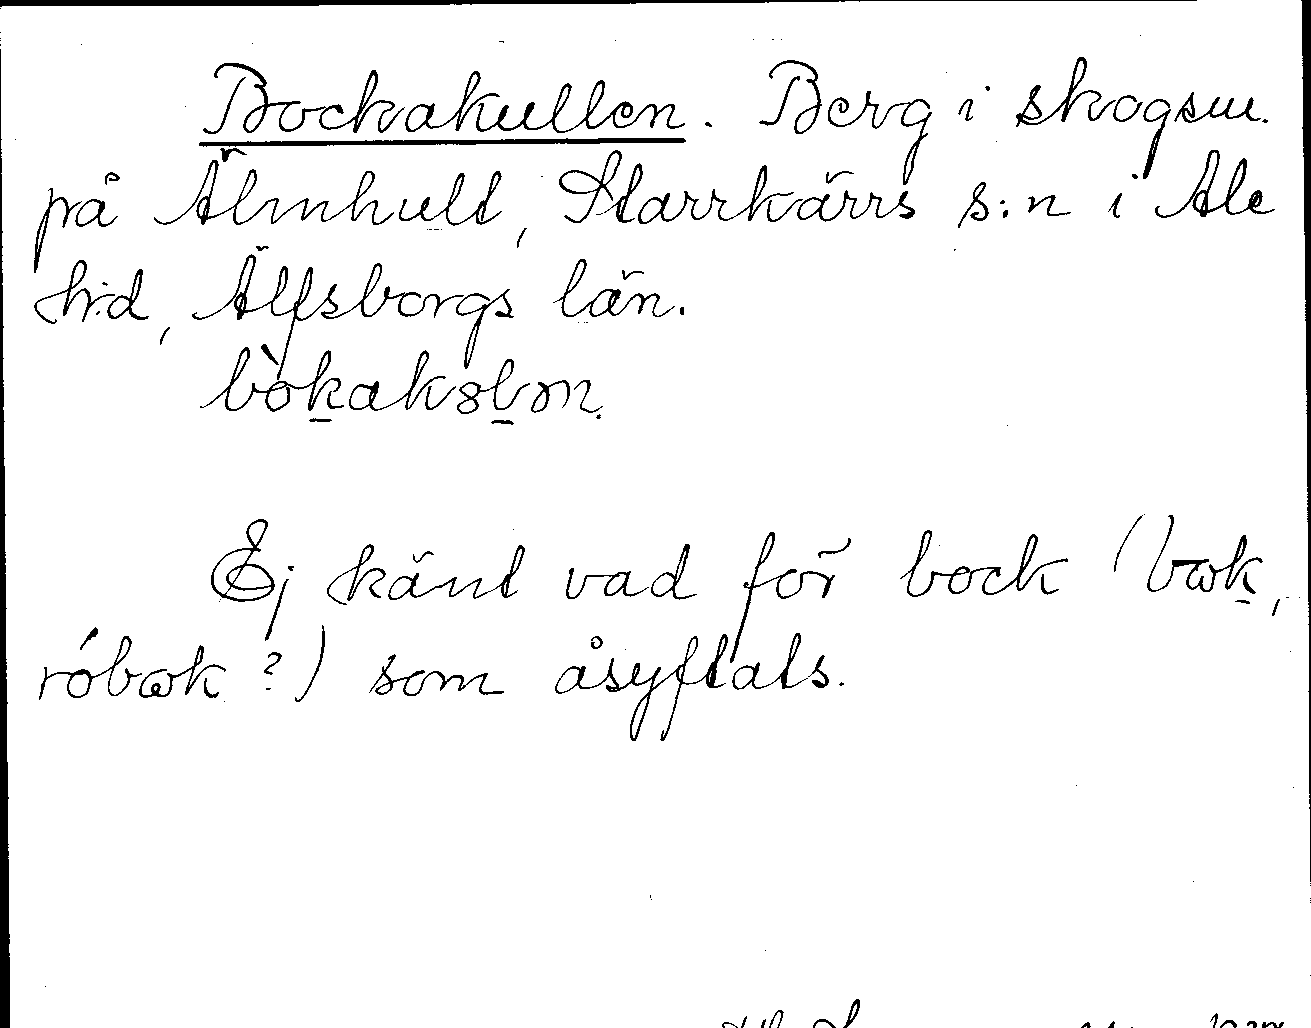 Bockakullen. Berg i skogsm.
på Älmhult, Starrkärrs s:n i Ale
h:d, Älfsborgs län.
Ej känt vad för bock
som åsyftats.